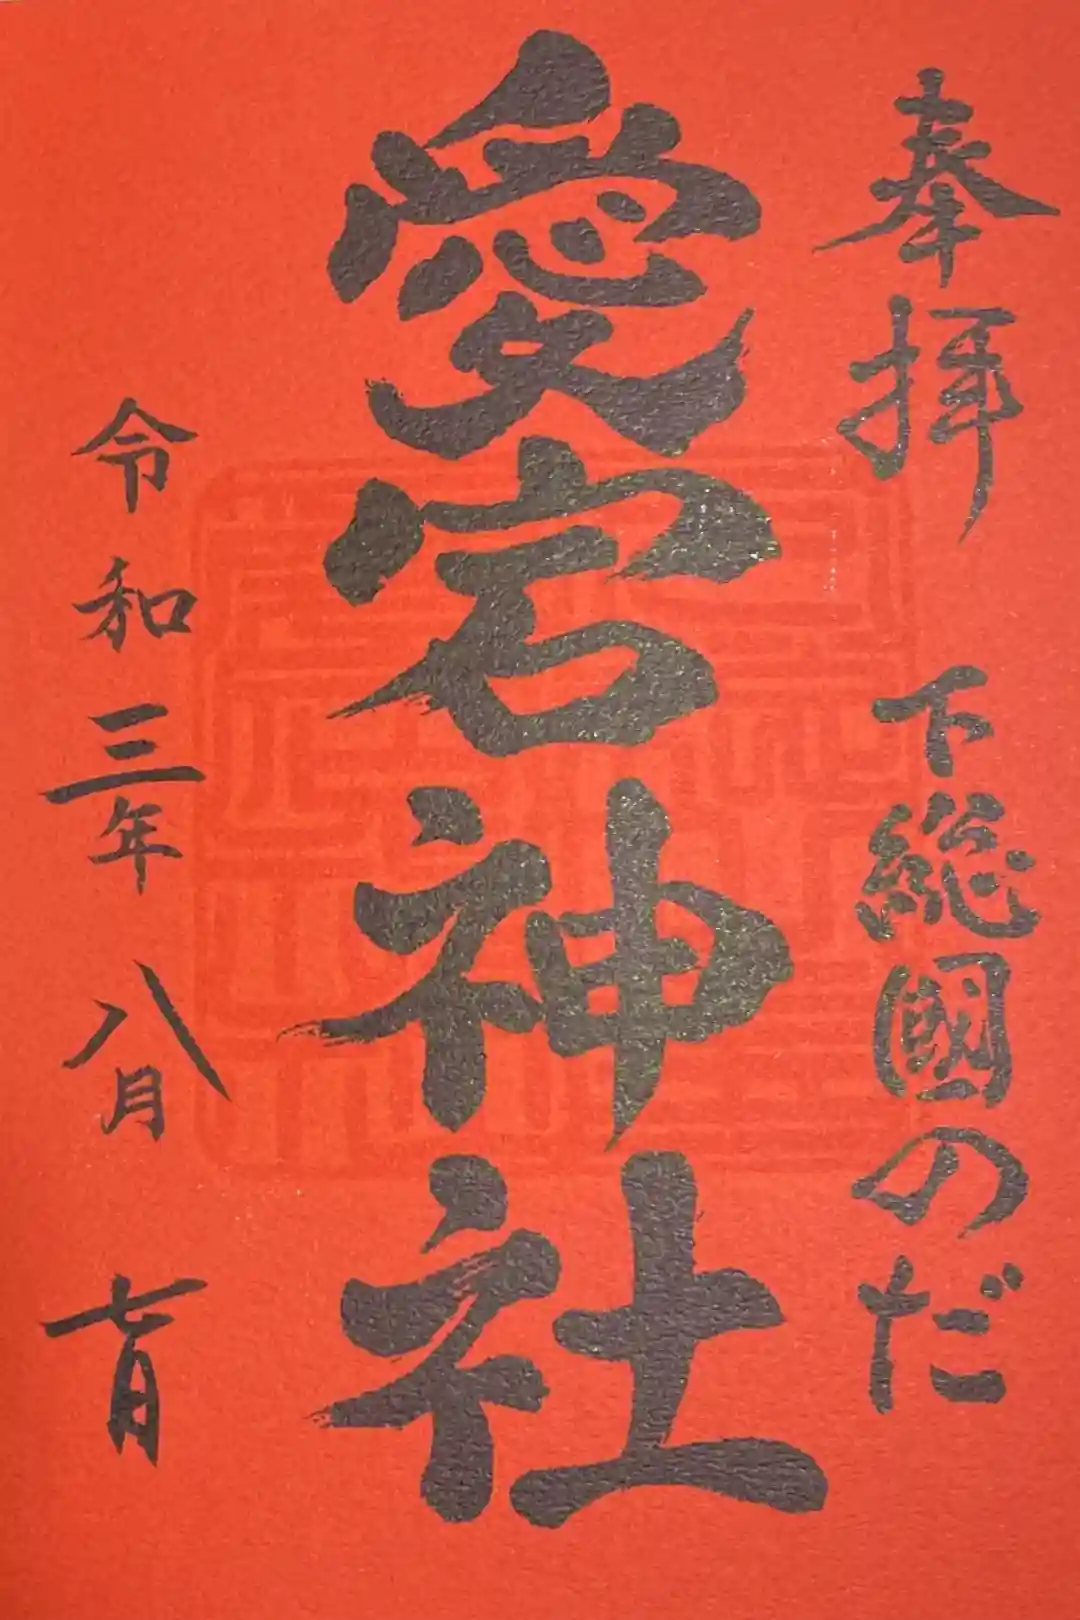 奉拝　下総國のだ
愛宕神社
令和三年八月七日